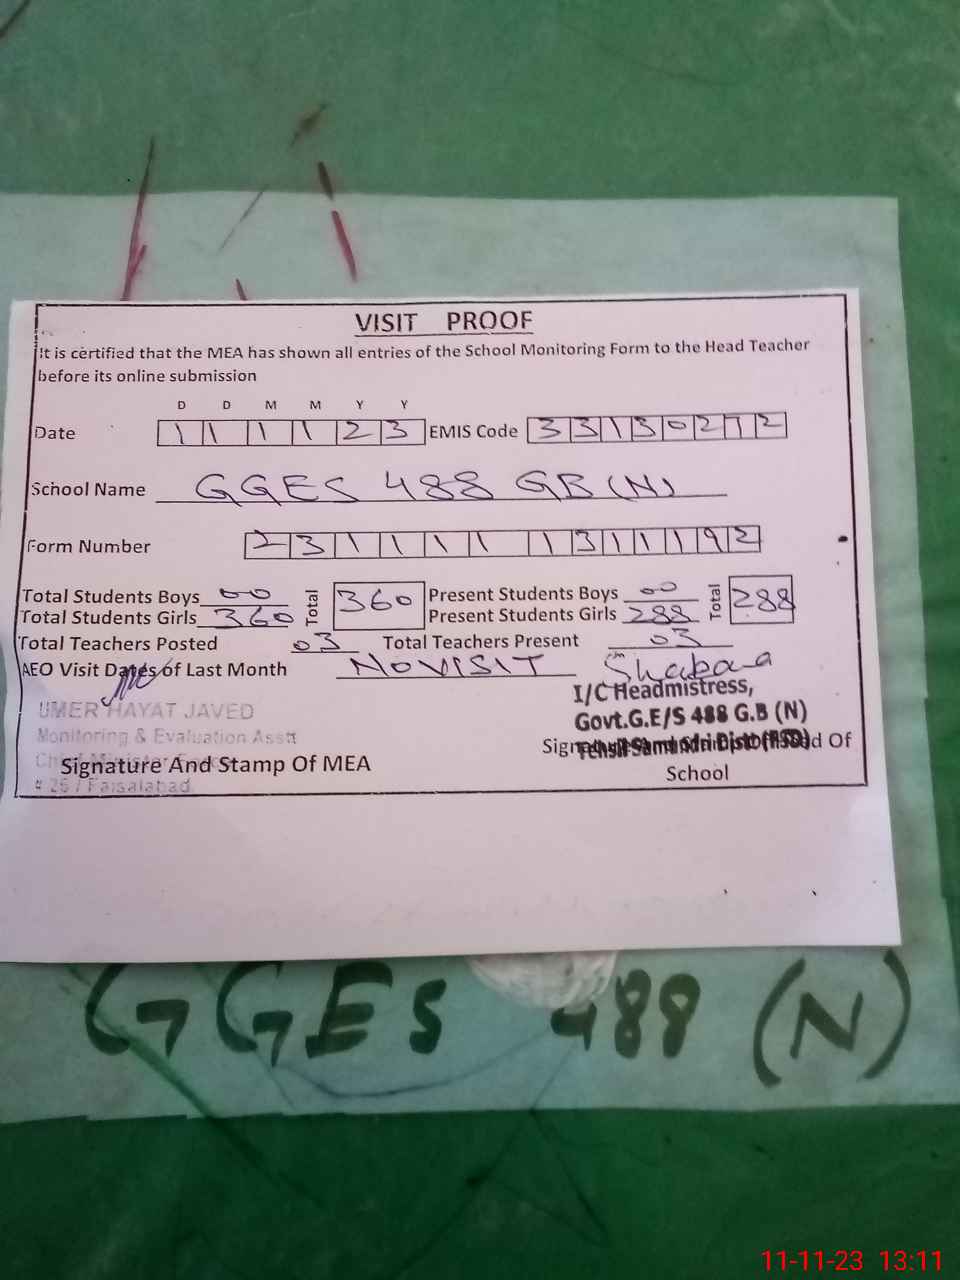 VISIT PROOF
It is certified that the MEA has shown all entries of the School Monitoring Form to the Head Teacher
before its online submission
D D M M Y Y
Date 1 1 1 1 2 3 EMIS Code 3 3 1 3 0 2 1 2
School Name GGES 488 GB (N)
Form Number 2 3 1 1 1 1 1 3 1 1 1 9 2
Total Students Boys 00 Total 360 Present Students Boys 00 Total 288
Total Students Girls 360 Present Students Girls 288
Total Teachers Posted 03 Total Teachers Present 03
AEO Visit Dates of Last Month NO VISIT Shabana
I/C Headmistress,
UMER HAYAT JAVED
Govt.G.E/S 488 G.B (N)
Monitoring & Evaluation Asstt
Tehsil Samundri Distt (FSD)
Signature And Stamp Of MEA
Of
School
# 26 / Faisalabad
GGES 488 (N)
11-11-23 13:11